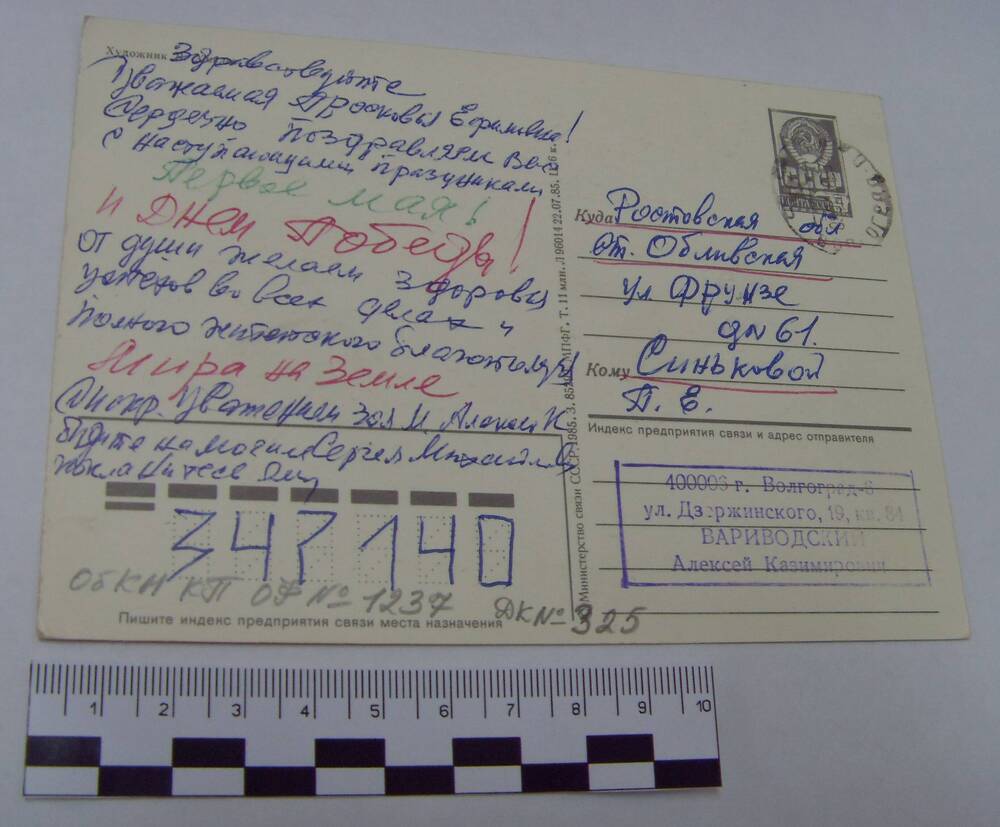 Художник
Здравствуйте
Уважаемая Просковья Ефимовна!
Сердечно поздравляем Вас
с наступающими праздниками
Первое мая!
и Днем Победы!
от души желаем здоровья
успехов во всех делах и
полного житейского благополучия
Мира на Земле
с искр. уважением Зоя М. Алексей К.
Будите на могиле Сергея
СССР
ПОЧТА СССР
Куда Ростовская обл
ст. Обливская
ул Фрунзе
дом 61.
Кому Синьковой
П. Е.
Индекс предприятия связи и адрес отправителя
400006 г. Волгоград-6
ул. Дзержинского, 19, кв. 84
ВАРИВОДСКИЙ
Алексей Казимирович
Министерство связи СССР. 1985. З. 85 МПФГ. Т. 11 млн. Л96014 22.07.85. Ц. 6 к.
347140
ОбКН КП ОФ № 1237 ДК № 325
Пишите индекс предприятия связи места назначения
1 2 3 4 5 6 7 8 9 10